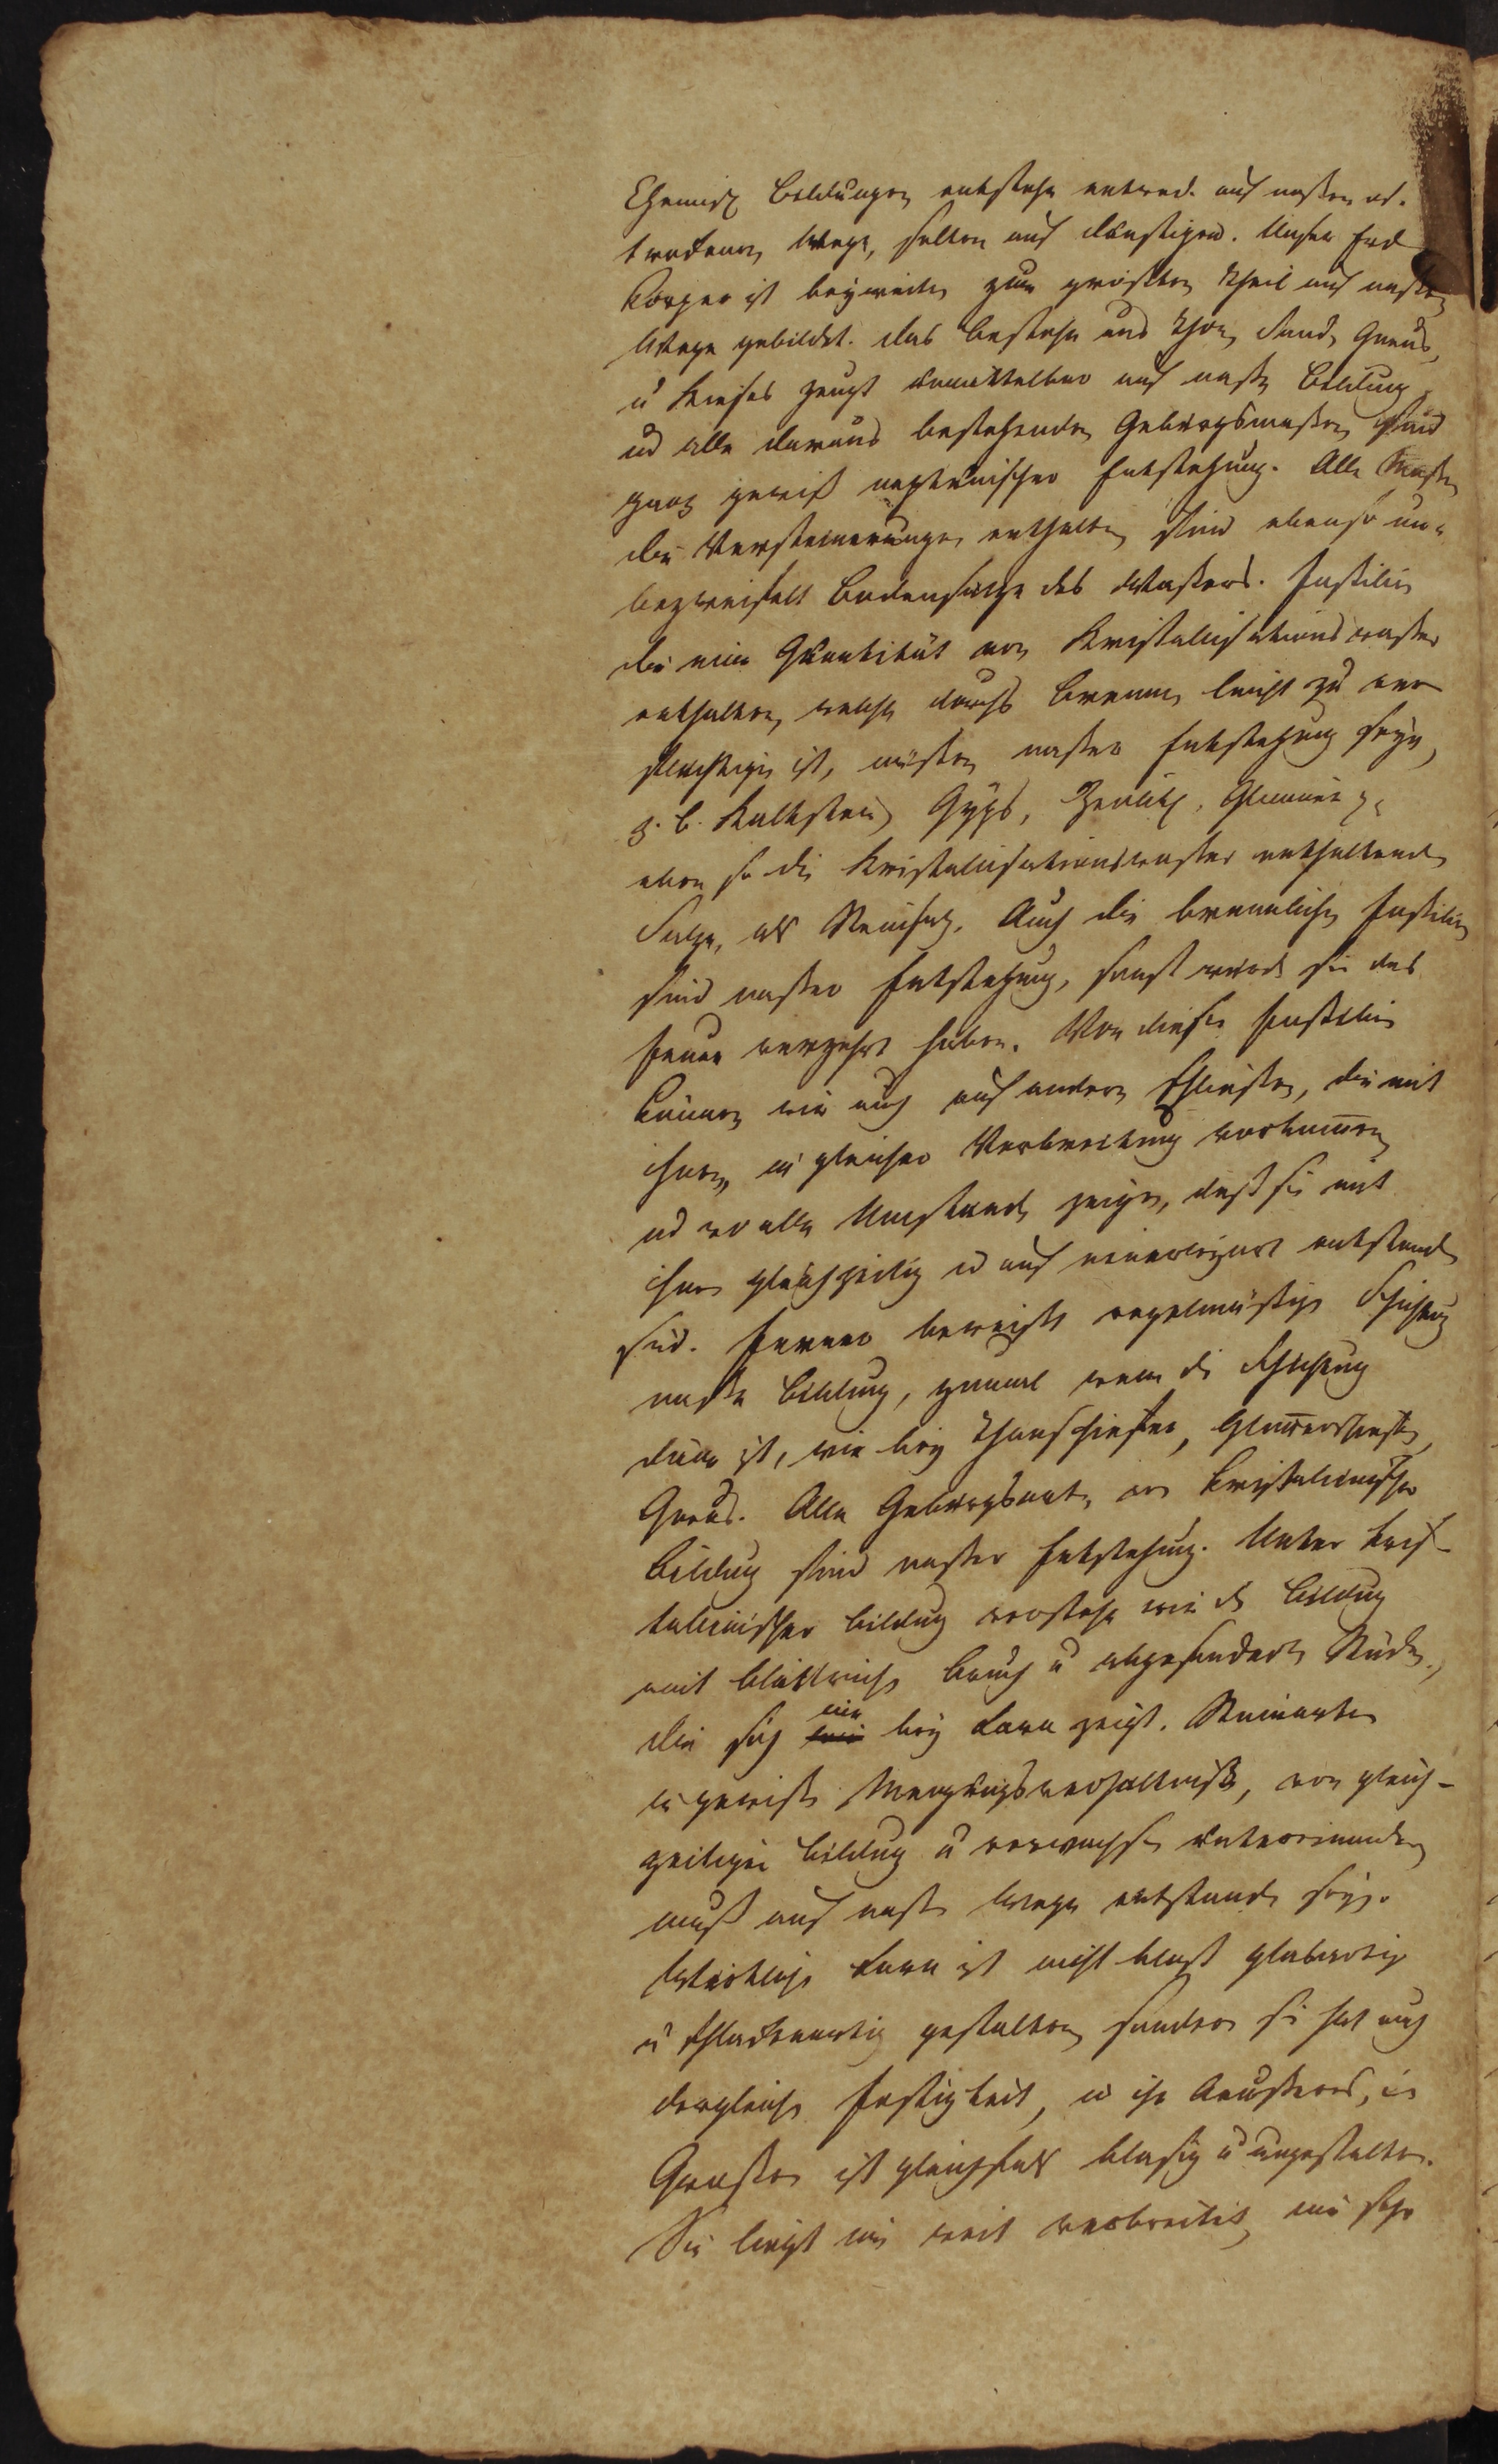 Chemisch Bildungen entstehn entwed. auf naßen od.
trockenen Wege, selten auf dunstigen. Unser Erd
körper ist beyweiten zum grösten Theil auf naßen
Wege gebildet. das bestehn aus Thon, Sand, Gneus,
u Kiesel zeugt unmittelbar auf naße Bildung
ud alle daraus bestehenden Gebirgsmaßen sind
ganz gewiß neptunischer Entstehung. Alle Maßen
die Versteinerungen enthalten sind ebenso un-
bezweifelt Bodensätze des Waßers. Foßilien
die eine Quantität von Kristallisationswaßer
enthalten, welche durchs brennen leicht zu ver
flüchtigen ist, müßen naßer Entstehung seyn,
z. b. Kalkstein, Gyps, Zeolith, Glimmer
eben so die Kristallisationswaßer enthaltenden
Salze, als Steinsalz. Auch die brennlichen Foßilien
sind naßer Entstehung, sonst würde sie das
Feuer verzehrt haben. Von diesen Foßilien
können wir auch auf andere schließen, die mit
ihnen, in gleicher Verbreitung vorkommen
ud wo alle Umstände zeigen, daß sie mit
ihnen gleichzeitig u auf einerleyart entstanden
sind. Ferner beweißt regelmäßige Schichtung
naße Bildung, zumal wenn die Schichtung
dünn ist, wie bey Thonschiefer, Glimmerschiefer,
Gneus. Alle Gebirgsarten, von kristallinischer
Bildung sind naßer Entstehung. Unter kris-
tallinischer Bildung verstehn wir die Bildung
mit blättrichen Bruch u abgesonderten Stücken,
die sich nie bey Lava zeigt. Steinarten
in gewißen Mengungsverhältnißen, von gleich-
zeitiger Bildung u verwachsen untereinander
muß auf naßen Wege entstanden seyn.
Wirkliche Lava ist nicht bloß glasartig
u schlackenartig gestalten sondern sie hat auch
dergleichen Festigkeit, u ihr Aeußeres, im
Großen ist gleichfals blasig u ungestalten.
Sie liegt nie weit verbreitet, nie sehr